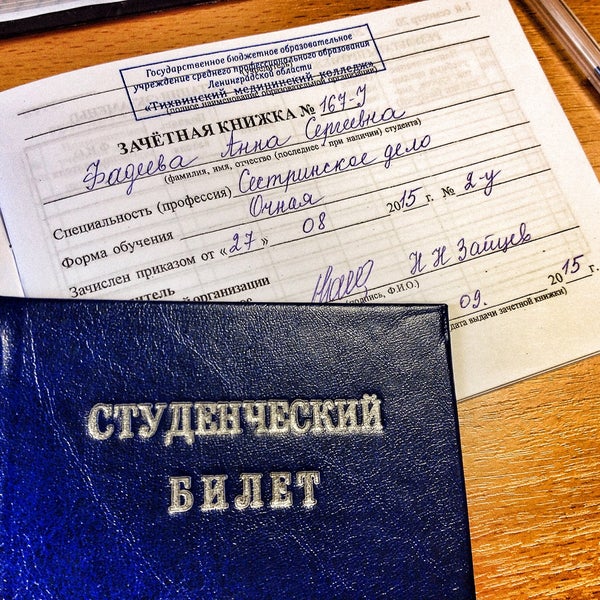 Государственное бюджетное образовательное
учреждение среднего профессионального образования
Ленинградской области
«Тихвинский медицинский колледж»
(полное наименование образовательной организации)
ЗАЧЁТНАЯ КНИЖКА № 167-У
Фадеева Анна Сергеевна
(фамилия, имя, отчество (последнее при наличии) студента)
Специальность (профессия) Сестринское дело
Форма обучения Очная
Зачислен приказом от «27» 08 2015 г. № 2-у
организации
Н Н Зайцев
подпись, Ф.И.О.)
09. 2015 г.
дата выдачи зачетной книжки)
СТУДЕНЧЕСКИЙ
БИЛЕТ